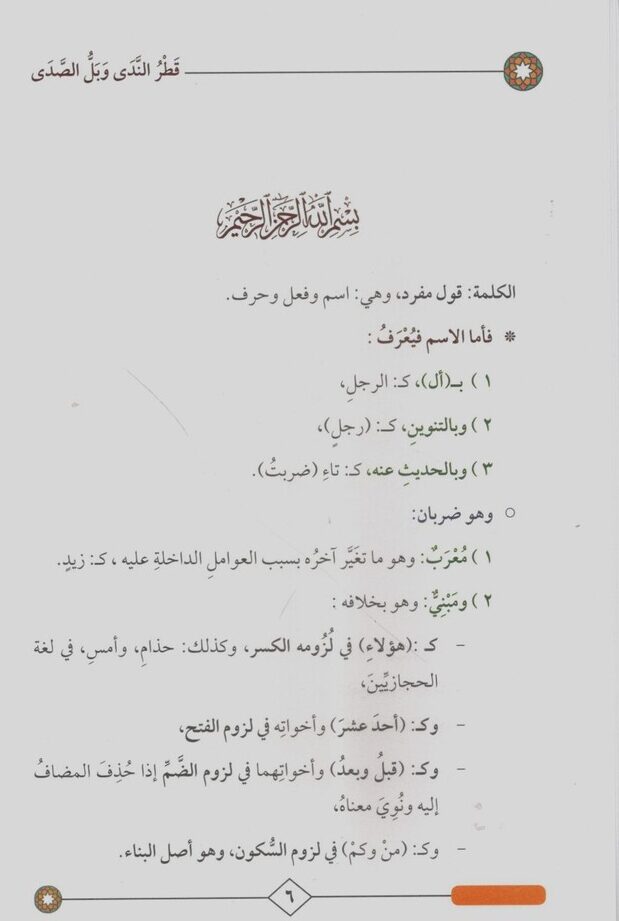 قَطْرُ النَّدَى وَبَلُّ الصَّدَى
بِسْمِ اللَّهِ الرَّحْمَنِ الرَّحِيمِ
الكلمة: قول مفرد، وهي: اسم وفعل وحرف.
* فأما الاسم فيُعْرَفُ :
١ ) بـ(أل)، كـ: الرجلِ،
٢ ) وبالتنوينِ، كـ: (رجلٍ)،
٣ ) وبالحديثِ عنه، كـ: تاءِ (ضربتُ).
○ وهو ضربان:
١ ) مُعْرَبٌ: وهو ما تغَيَّر آخرُه بسبب العواملِ الداخلةِ عليه ، كـ: زيدٍ.
٢ ) ومَبْنِيٌّ: وهو بخلافه :
- كـ :(هؤلاءِ) في لُزُومه الكسر، وكذلك: حذامِ، وأمسِ، في لغة
الحجازيِّينَ،
- وكـ: (أحدَ عشرَ) وأخواتِه في لزوم الفتح،
- وكـ: (قبلُ وبعدُ) وأخواتِهما في لزوم الضَّمِّ إذا حُذِفَ المضافُ
إليه ونُوِيَ معناهُ،
- وكـ: (منْ وكمْ) في لزوم السُّكون، وهو أصل البناء.
٦